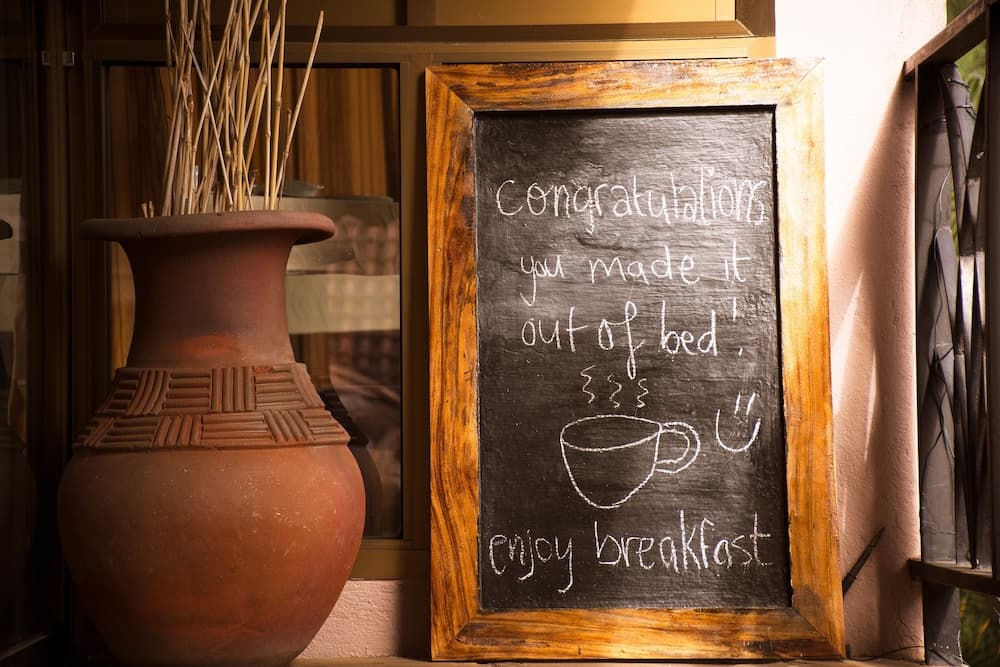 congratulations
you made it
out of bed!
enjoy breakfast